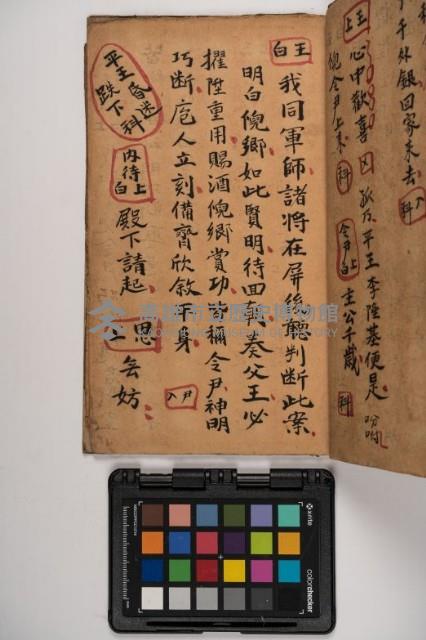 千外銀回家来去 入科
王上 心中歡喜 又 孤乃平王李陞基便是 吩咐
倪令尹上来 科 令尹上白 主公千歲 科
王白 我同軍師諸將在屏後聽判斷此案
明白倪鄉如此賢明待回朝奏父王必
擢陞重用賜酒倪鄉賞功 令尹神明
巧斷 庖人立刻備齊欣敘 身 尹入
平王昏迷跌下科 內侍上白 殿下請起 上 思 無妨
高雄市立歷史博物館
KAOHSIUNG MUSEUM OF HISTORY
x-rite
colorchecker